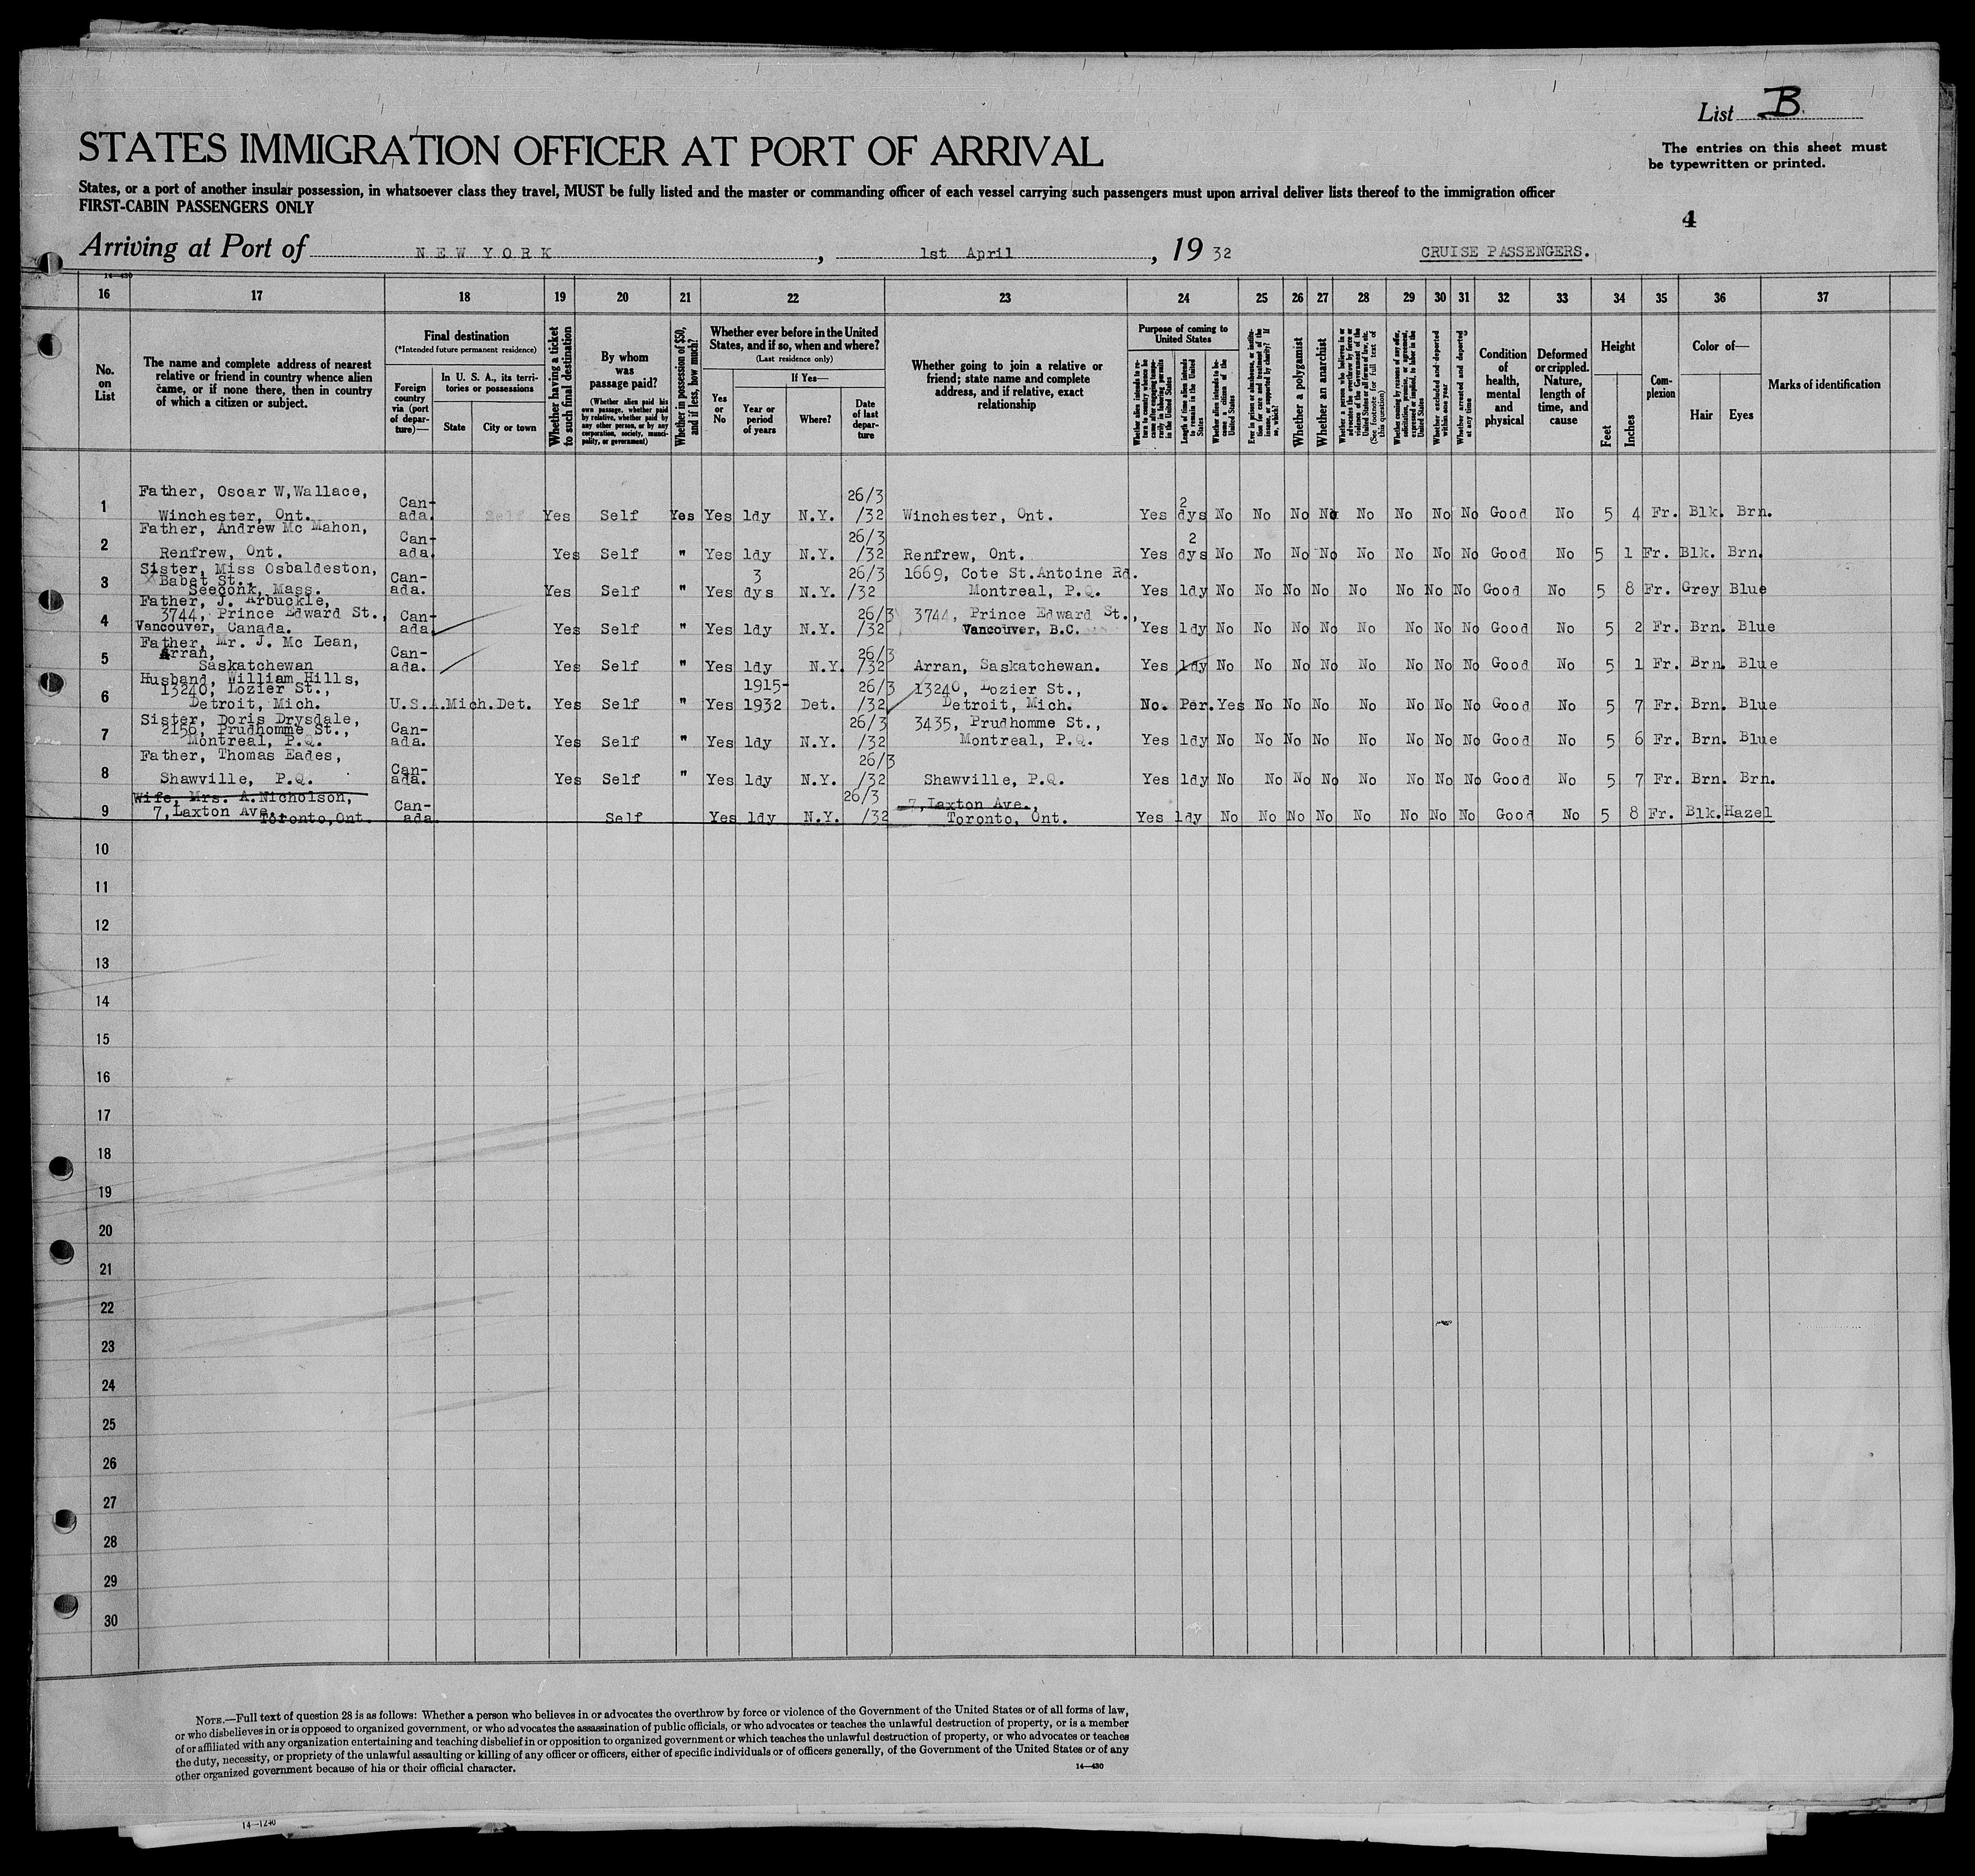 List B.
STATES IMMIGRATION OFFICER AT PORT OF ARRIVAL
The entries on this sheet must
be typewritten or printed.
States, or a port of another insular possession, in whatsoever class they travel, MUST be fully listed and the master or commanding officer of each vessel carrying such passengers must upon arrival deliver lists thereof to the immigration officer
FIRST-CABIN PASSENGERS ONLY
4
Arriving at Port of NEW YORK, 1st April, 1932 CRUISE PASSENGERS.
14—430
16 17 18 19 20 21 22 23 24 25 26 27 28 29 30 31 32 33 34 35 36 37
No.
on
List
The name and complete address of nearest
relative or friend in country whence alien
came, or if none there, then in country
of which a citizen or subject.
Final destination
(*Intended future permanent residence)
Foreign
country
via (port
of depar-
ture)—
In U. S. A., its terri-
tories or possessions
State
City or town
Whether having a ticket
to such final destination
By whom
was
passage paid?
(Whether alien paid his
own passage, whether paid
by relative, whether paid by
any other person, or by any
corporation, society, munici-
pality, or government)
Whether in possession of $50,
and if less, how much?
Whether ever before in the United
States, and if so, when and where?
(Last residence only)
Yes
or
No
If Yes—
Year or
period
of years
Where?
Date
of last
depar-
ture
Whether going to join a relative or
friend; state name and complete
address, and if relative, exact
relationship
Purpose of coming to
United States
Whether alien intends to re-
turn to country whence he
came after engaging tempo-
rarily in laboring pursuits
in the United States
Length of time alien intends
to remain in the United
States
Whether alien intends to be-
come a citizen of the
United States
Ever in prison or almshouse, or institu-
tion for care and treatment of the
insane, or supported by charity? If
so, which?
Whether a polygamist
Whether an anarchist
Whether a person who believes in or
advocates the overthrow by force or
violence of the Government of the
United States or all forms of law, etc.
(See footnote for full text of
this question)
Whether coming by reasons of any offer,
solicitation, promise, or agreement,
expressed or implied, to labor in the
United States
Whether excluded and deported
within one year
Whether arrested and deported
at any time
Condition
of
health,
mental
and
physical
Deformed
or crippled.
Nature,
length of
time, and
cause
Height
Feet
Inches
Com-
plexion
Color of—
Hair
Eyes
Marks of identification
1 Father, Oscar W,Wallace,
Winchester, Ont. Can-
ada. Self Yes Self Yes Yes 1dy N.Y. 26/3
/32 Winchester, Ont. Yes 2
dys No No No No No No No No Good No 5 4 Fr. Blk. Brn.
2 Father, Andrew Mc Mahon,
Renfrew, Ont. Can-
ada. Yes Self " Yes 1dy N.Y. 26/3
/32 Renfrew, Ont. Yes 2
dys No No No No No No No No Good No 5 1 Fr. Blk. Brn.
3 Sister, Miss Osbaldeston,
Babet St.,
Seeconk, Mass. Can-
ada. Yes Self " Yes 3
dys N.Y. 26/3
/32 1669, Cote St.Antoine Rd.
Montreal, P.Q. Yes 1dy No No No No No No No No Good No 5 8 Fr. Grey Blue
4 Father, J. Arbuckle,
3744, Prince Edward St.,
Vancouver, Canada. Can-
ada. Yes Self " Yes 1dy N.Y. 26/3
/32 3744, Prince Edward St.,
Vancouver, B.C. Yes 1dy No No No No No No No No Good No 5 2 Fr. Brn. Blue
5 Father, Mr. J. Mc Lean,
Arran,
Saskatchewan Can-
ada. Yes Self " Yes 1dy N.Y. 26/3
/32 Arran, Saskatchewan. Yes 1dy No No No No No No No No Good No 5 1 Fr. Brn. Blue
6 Husband, William Hills,
13240, Lozier St.,
Detroit, Mich. U.S.A. Mich. Det. Yes Self " Yes 1915-
1932 Det. 26/3
/32 13240, Lozier St.,
Detroit, Mich. No. Per. Yes No No No No No No No Good No 5 7 Fr. Brn. Blue
7 Sister, Doris Drysdale,
2156, Prudhomme St.,
Montreal, P.Q. Can-
ada. Yes Self " Yes 1dy N.Y. 26/3
/32 3435, Prudhomme St.,
Montreal, P.Q. Yes 1dy No No No No No No No No Good No 5 6 Fr. Brn. Blue
8 Father, Thomas Eades,
Shawville, P.Q. Can-
ada. Yes Self " Yes 1dy N.Y. 26/3
/32 Shawville, P.Q. Yes 1dy No No No No No No No No Good No 5 7 Fr. Brn. Brn.
9 Wife, Mrs. A.Nicholson,
7,Laxton Ave.,
Toronto,Ont. Can-
ada. Self Yes 1dy N.Y. 26/3
/32 7,Laxton Ave.,
Toronto, Ont. Yes 1dy No No No No No No No No Good No 5 8 Fr. Blk. Hazel
10
11
12
13
14
15
16
17
18
19
20
21
22
23
24
25
26
27
28
29
30
NOTE.—Full text of question 28 is as follows: Whether a person who believes in or advocates the overthrow by force or violence of the Government of the United States or of all forms of law,
or who disbelieves in or is opposed to organized government, or who advocates the assassination of public officials, or who advocates or teaches the unlawful destruction of property, or is a member
of or affiliated with any organization entertaining and teaching disbelief in or opposition to organized government or which teaches the unlawful destruction of property, or who advocates or teaches
the duty, necessity, or propriety of the unlawful assaulting or killing of any officer or officers, either of specific individuals or of officers generally, of the Government of the United States or of any
other organized government because of his or their official character.
14—430
14—1240